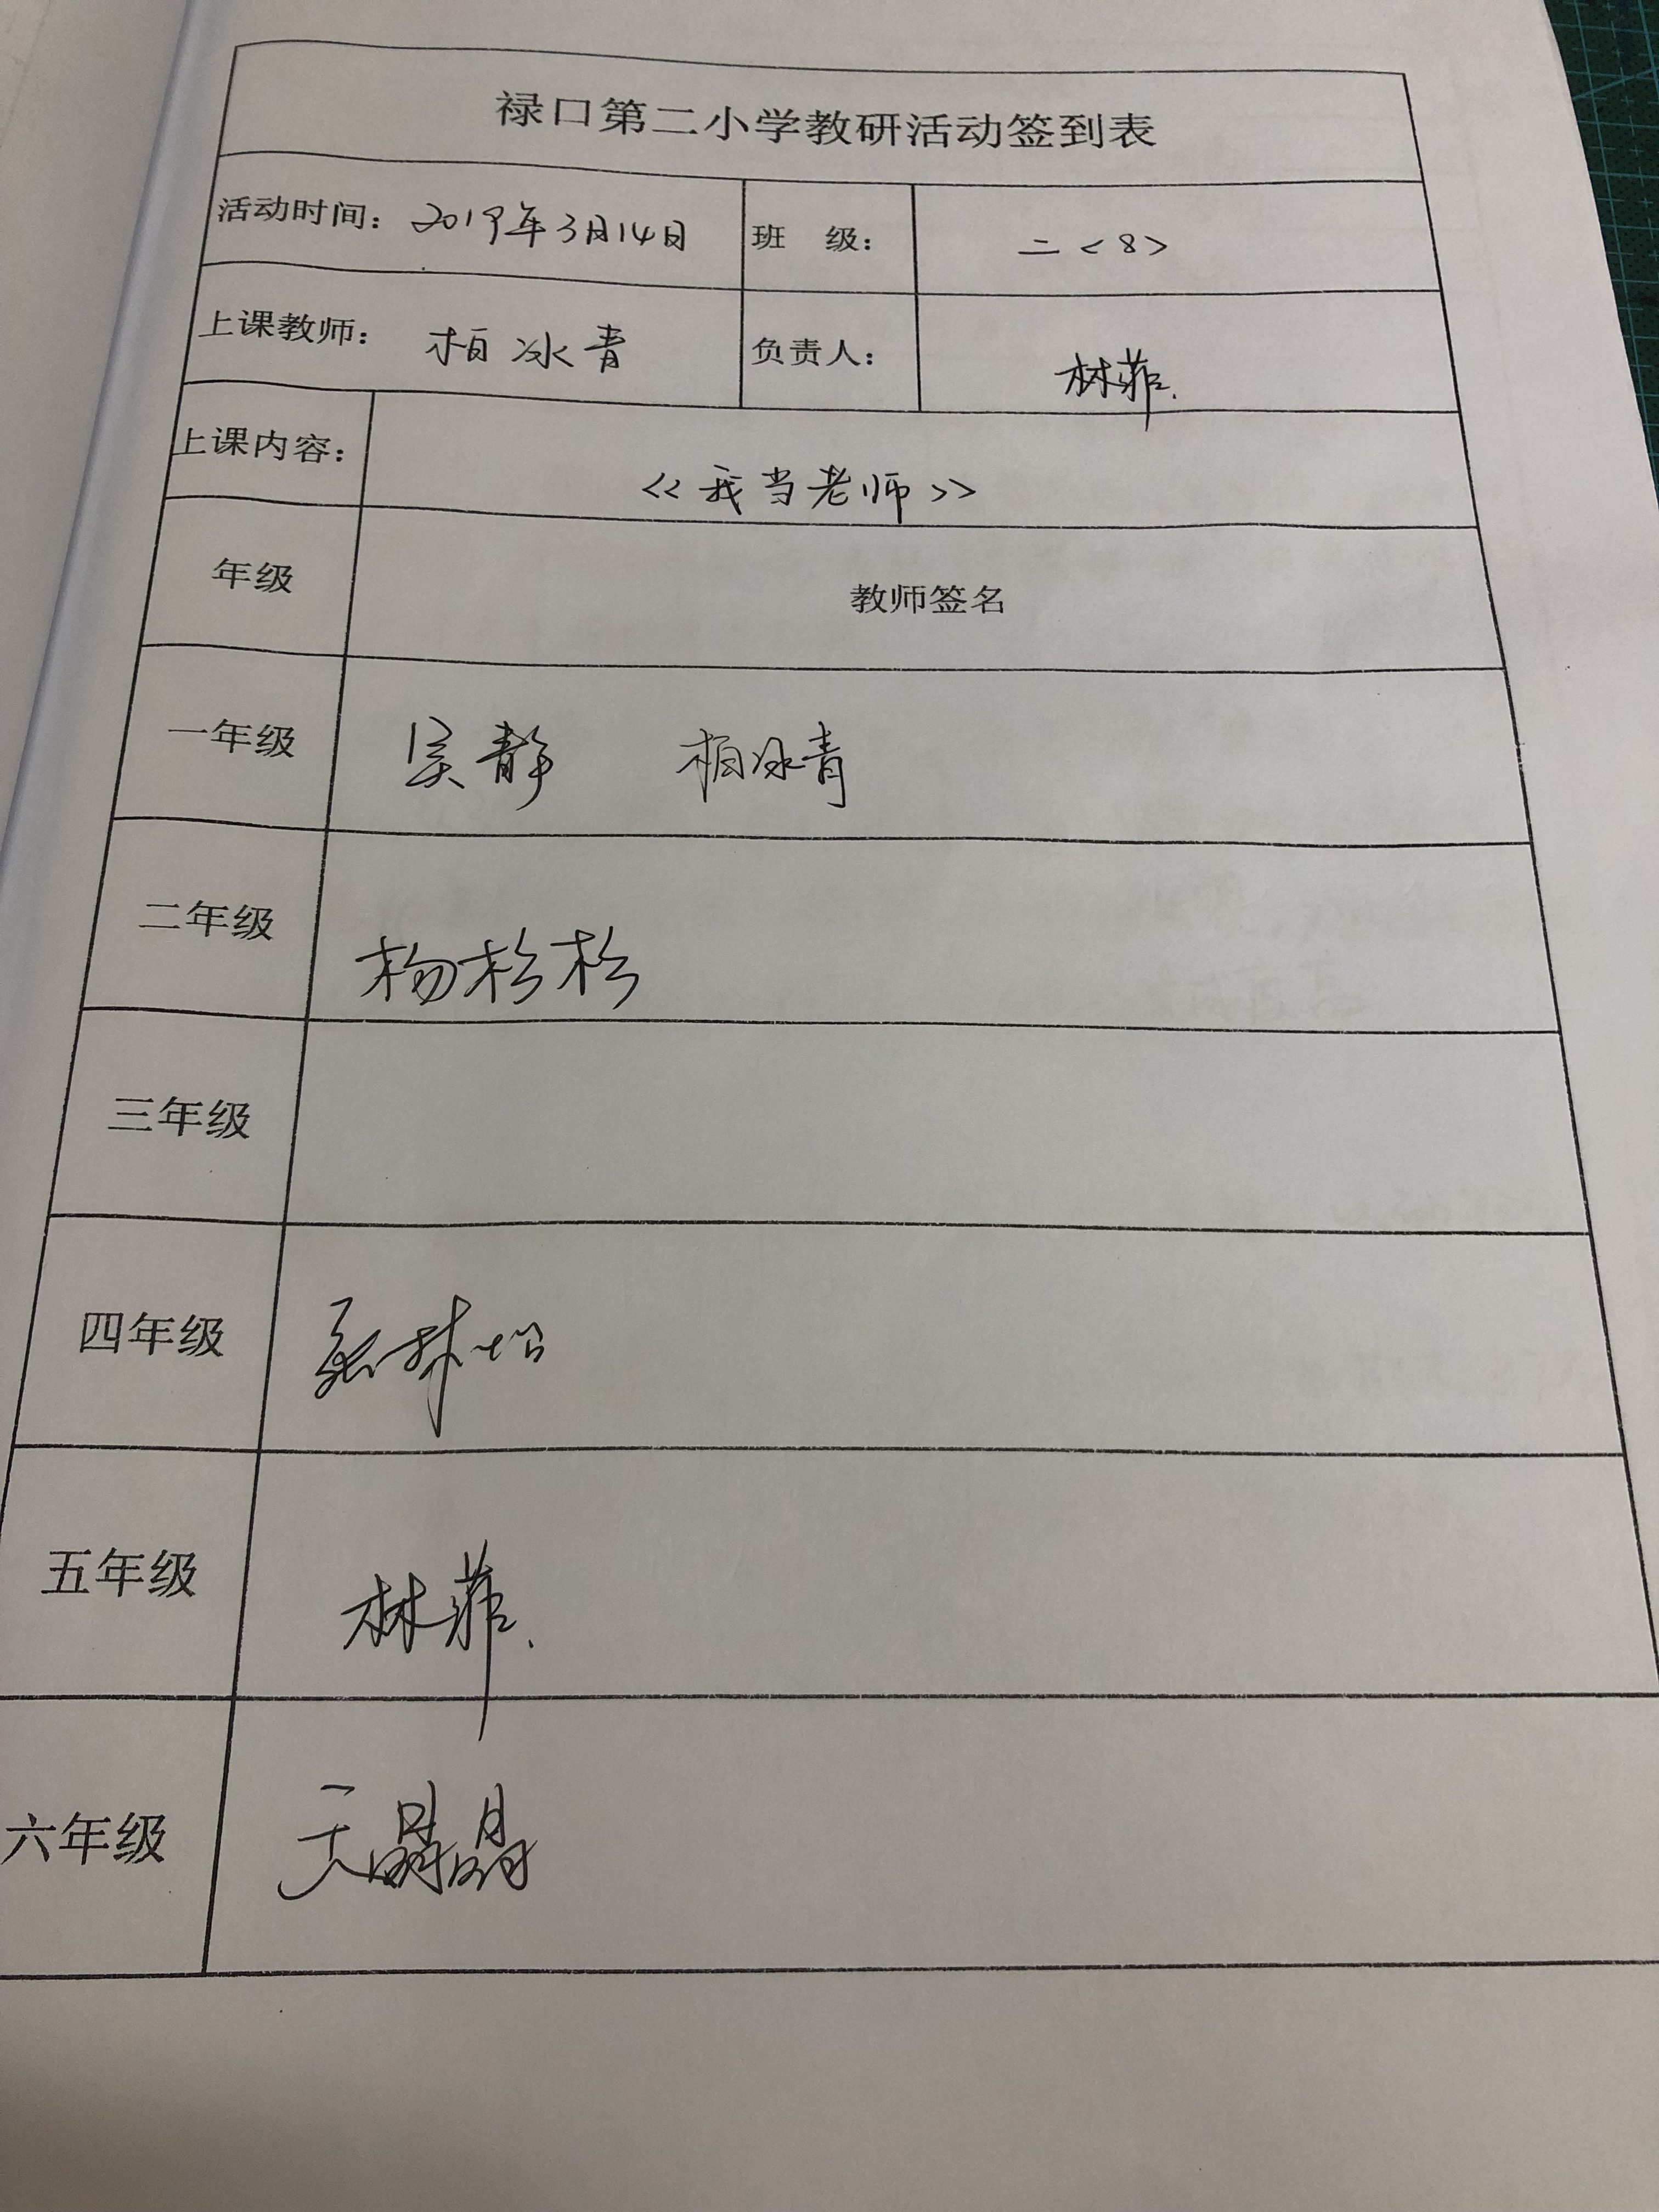 禄口第二小学教研活动签到表
活动时间： 2019年3月14日 班 级： 二<8>
上课教师： 柏冰青 负责人： 林菲.
上课内容： <<我当老师>>
年级 教师签名
一年级 吴静 柏冰青
二年级 杨杉杉
三年级
四年级
五年级 林菲.
六年级 晶晶